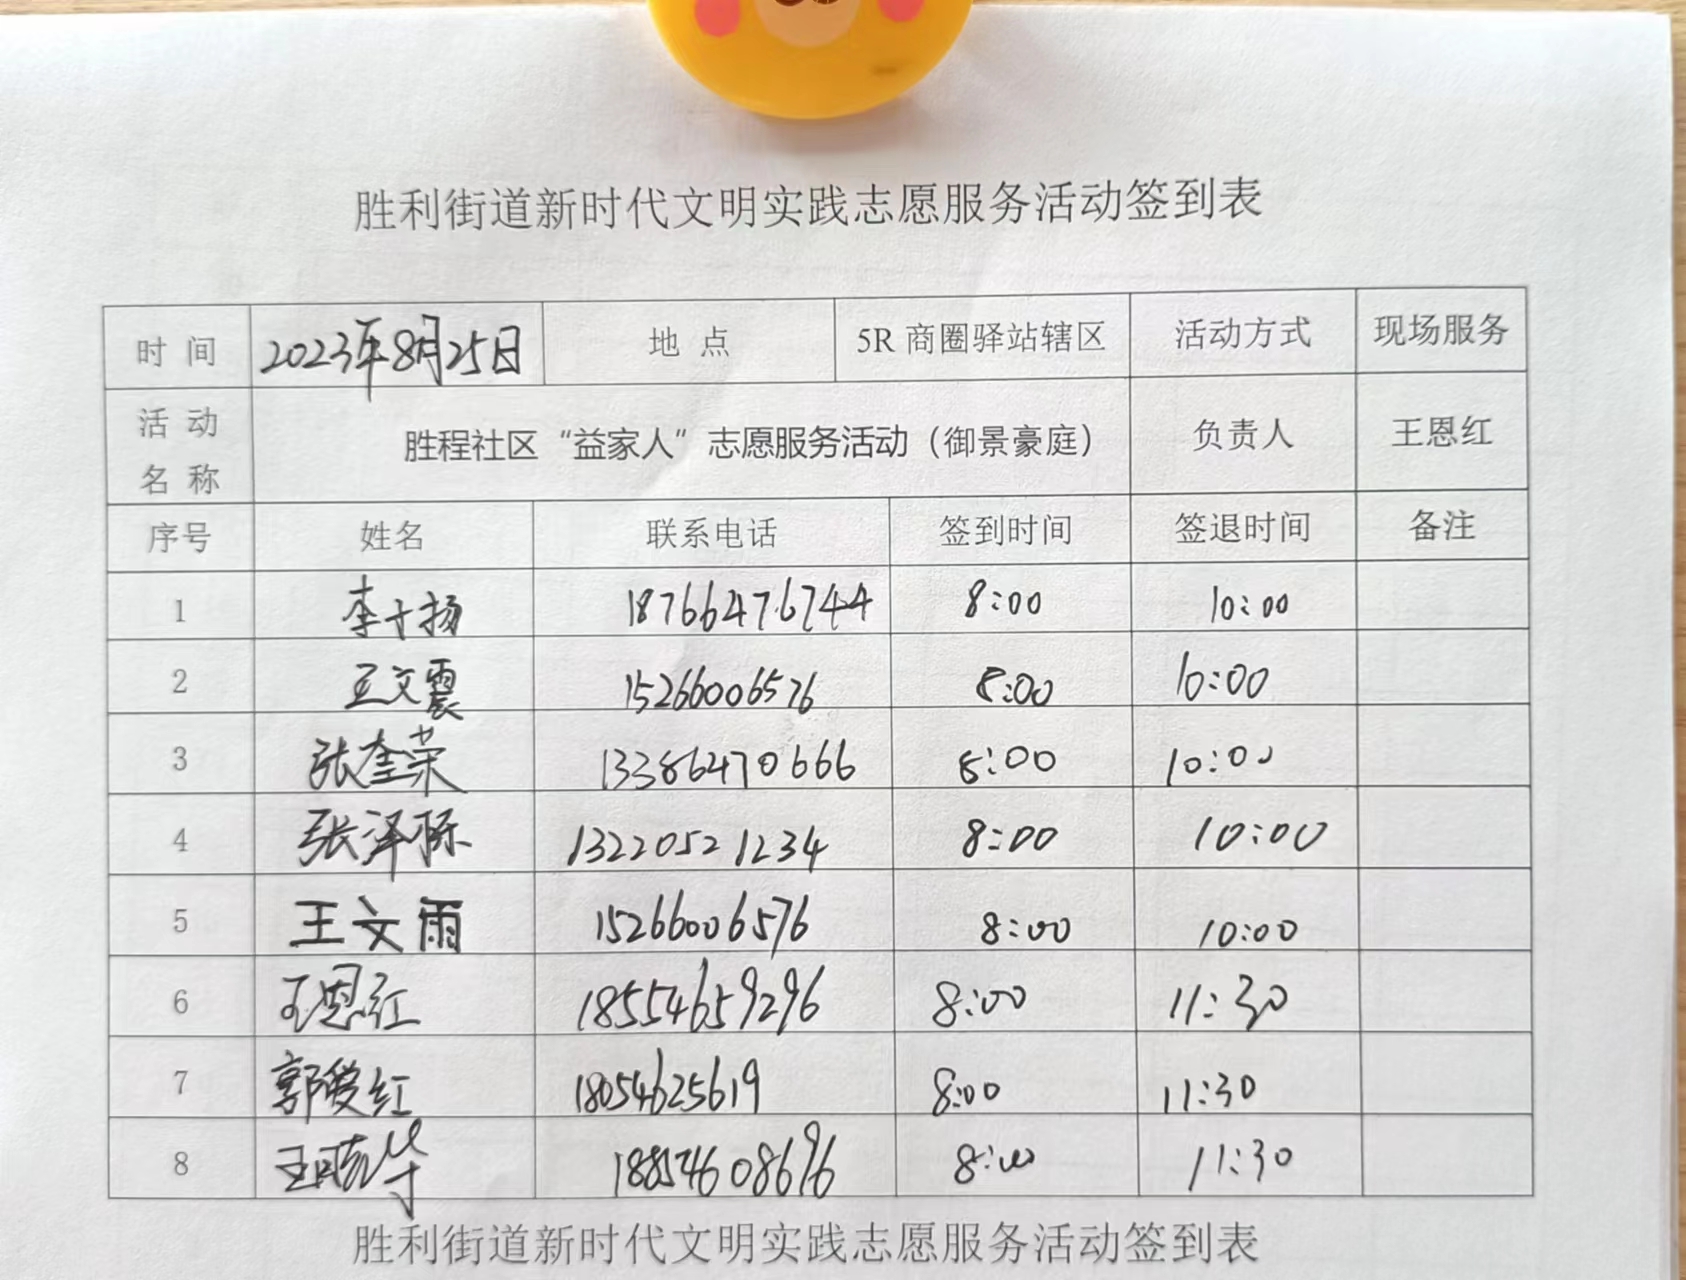 胜利街道新时代文明实践志愿服务活动签到表
时 间 2023年8月25日 地 点 5R 商圈驿站辖区 活动方式 现场服务
活 动 名 称 胜程社区“益家人”志愿服务活动（御景豪庭） 负责人 王恩红
序号 姓名 联系电话 签到时间 签退时间 备注
1 李十扬 18766476744 8:00 10:00
2 王文震 15266006576 8:00 10:00
3 张奎荣 13386470666 8:00 10:00
4 张泽际 13220521234 8:00 10:00
5 王文雨 15266006576 8:00 10:00
6 王恩红 18554659296 8:00 11:30
7 郭爱红 18054625619 8:00 11:30
8 王晓华 18854608696 8:00 11:30
胜利街道新时代文明实践志愿服务活动签到表